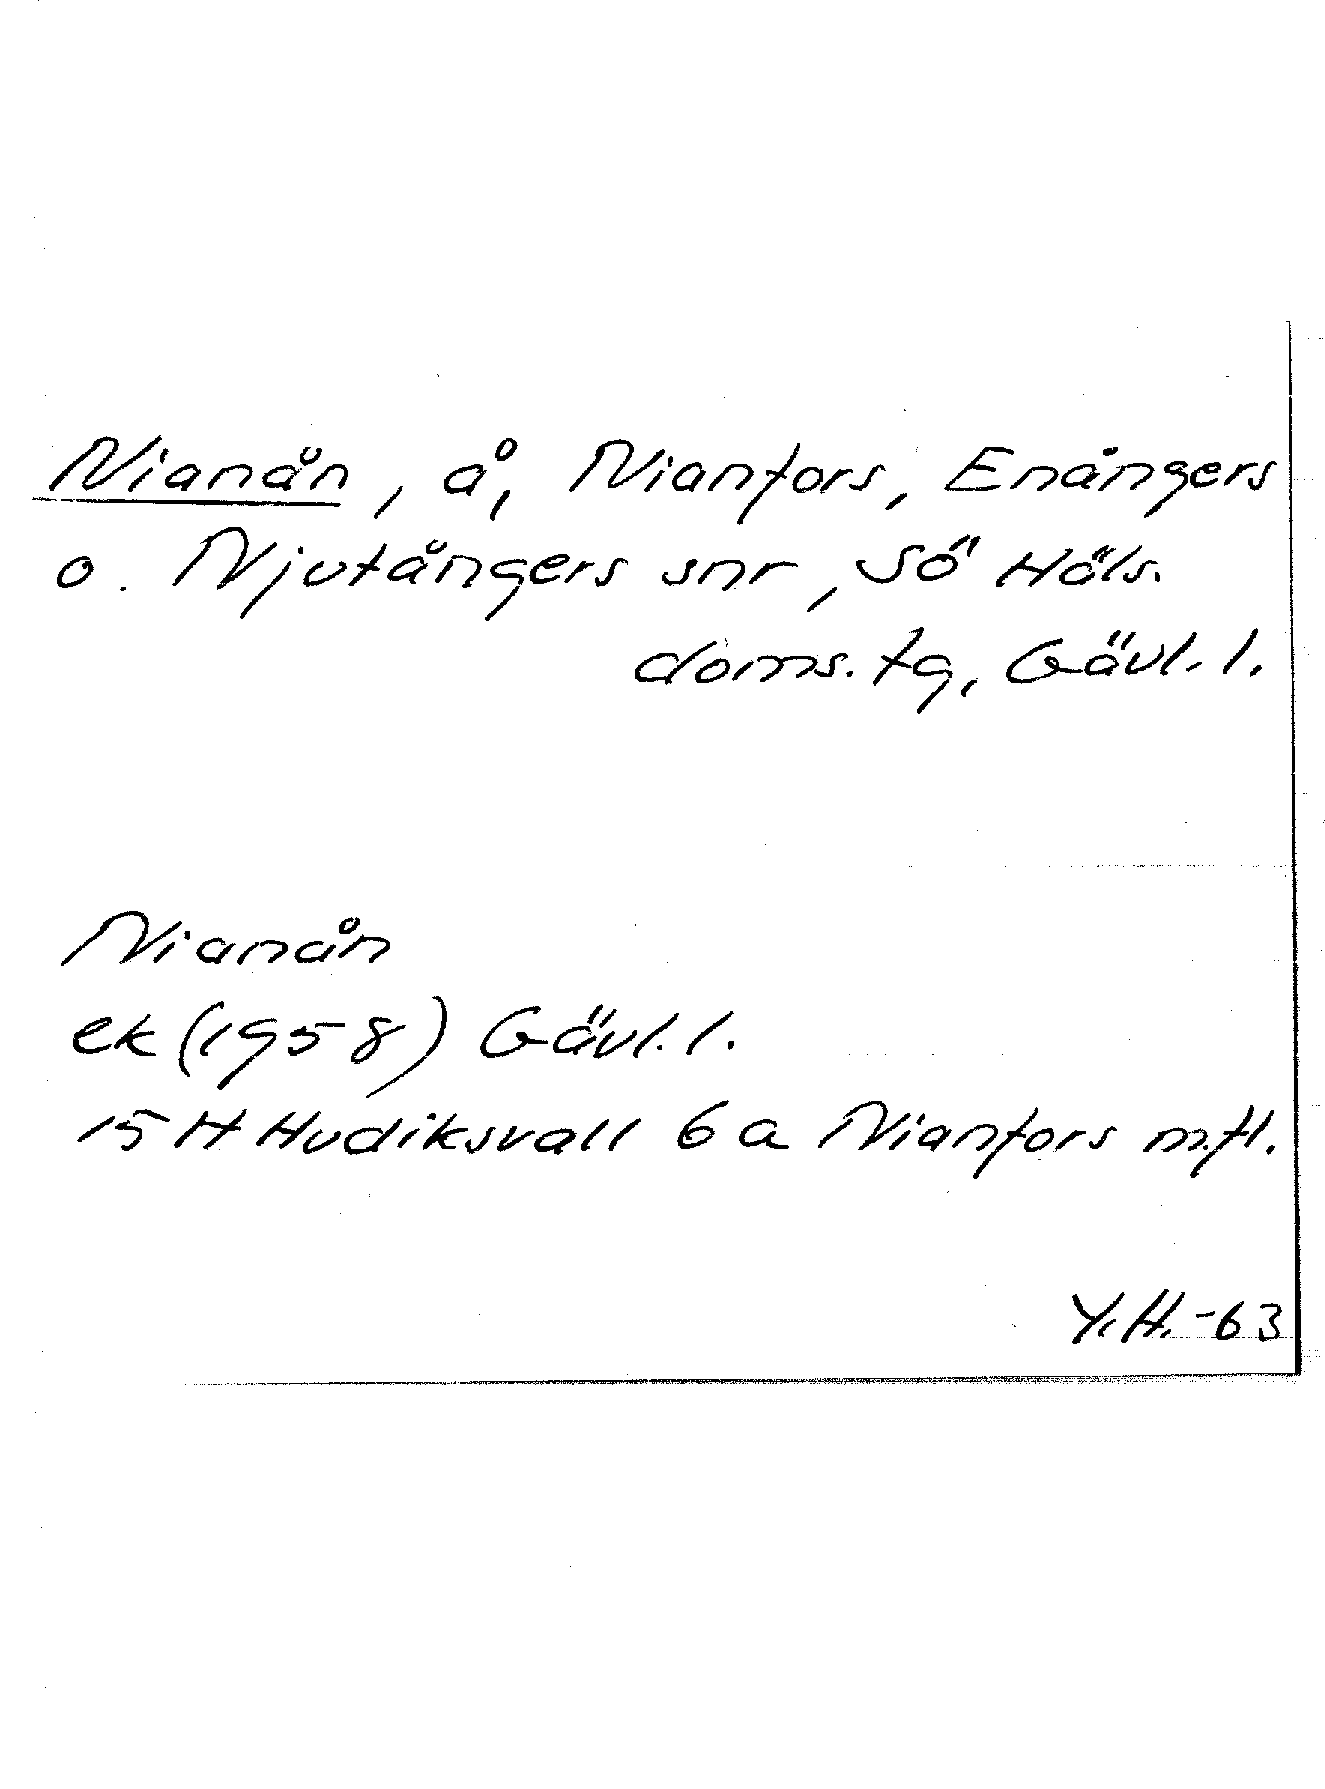 Nianån, å, Nianfors, Enångers
o. Njutångers snr, Sö Häls.
doms. tg, Gävl. l.
Nianån
ek (1958) Gävl. l.
15 H Hudiksvall 6 a Nianfors m.fl.
Y.H. -63